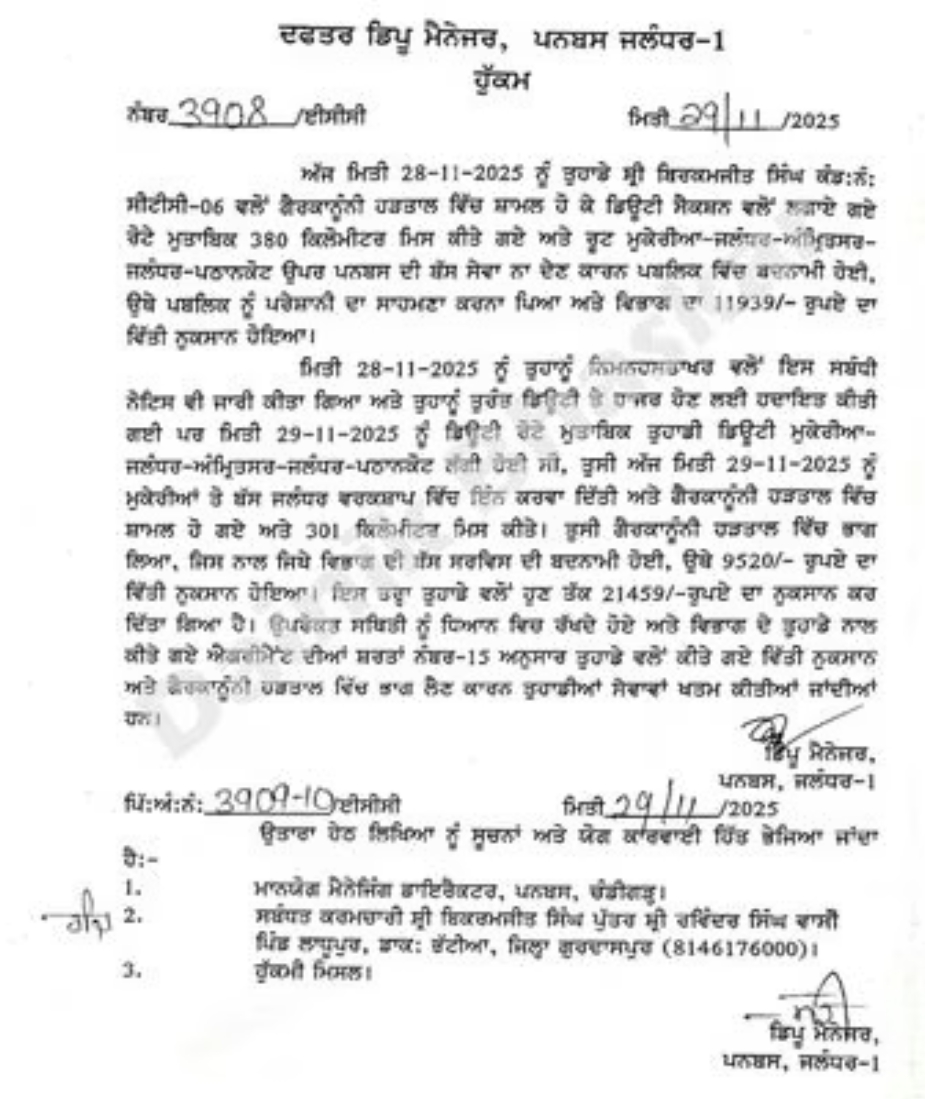 ਦਫਤਰ ਡਿਪੂ ਮੈਨੇਜਰ, ਪਨਬਸ ਜਲੰਧਰ-1
ਹੁੱਕਮ
ਨੰਬਰ 3908 /ਈਸੀਸੀ ਮਿਤੀ 29/11 /2025
ਅੱਜ ਮਿਤੀ 28-11-2025 ਨੂੰ ਤੁਹਾਡੇ ਸ਼੍ਰੀ ਬਿਰਕਮਜੀਤ ਸਿੰਘ ਕੰਡ:ਨੰ:
ਸੀਟੀਸੀ-06 ਵਲੋਂ ਗੈਰਕਾਨੂੰਨੀ ਹੜਤਾਲ ਵਿੱਚ ਸ਼ਾਮਲ ਹੋ ਕੇ ਡਿਊਟੀ ਸੈਕਸ਼ਨ ਵਲੋਂ ਲਗਾਏ ਗਏ
ਰੋਟੇ ਮੁਤਾਬਿਕ 380 ਕਿਲੋਮੀਟਰ ਮਿਸ ਕੀਤੇ ਗਏ ਅਤੇ ਰੂਟ ਮੁਕੇਰੀਆ-ਜਲੰਧਰ-ਅੰਮ੍ਰਿਤਸਰ-
ਜਲੰਧਰ-ਪਠਾਨਕੋਟ ਉਪਰ ਪਨਬਸ ਦੀ ਬੱਸ ਸੇਵਾ ਨਾ ਦੇਣ ਕਾਰਨ ਪਬਲਿਕ ਵਿੱਚ ਬਦਨਾਮੀ ਹੋਈ,
ਉਥੇ ਪਬਲਿਕ ਨੂੰ ਪਰੇਸ਼ਾਨੀ ਦਾ ਸਾਹਮਣਾ ਕਰਨਾ ਪਿਆ ਅਤੇ ਵਿਭਾਗ ਦਾ 11939/- ਰੁਪਏ ਦਾ
ਵਿੱਤੀ ਨੁਕਸਾਨ ਹੋਇਆ।
ਮਿਤੀ 28-11-2025 ਨੂੰ ਤੁਹਾਨੂੰ ਨਿਮਨਹਸਤਾਖਰ ਵਲੋਂ ਇਸ ਸਬੰਧੀ
ਨੋਟਿਸ ਵੀ ਜਾਰੀ ਕੀਤਾ ਗਿਆ ਅਤੇ ਤੁਹਾਨੂੰ ਤੁਰੰਤ ਡਿਊਟੀ ਤੇ ਹਾਜਰ ਹੋਣ ਲਈ ਹਦਾਇਤ ਕੀਤੀ
ਗਈ ਪਰ ਮਿਤੀ 29-11-2025 ਨੂੰ ਡਿਊਟੀ ਰੋਟੇ ਮੁਤਾਬਿਕ ਤੁਹਾਡੀ ਡਿਊਟੀ ਮੁਕੇਰੀਆ-
ਜਲੰਧਰ-ਅੰਮ੍ਰਿਤਸਰ-ਜਲੰਧਰ-ਪਠਾਨਕੋਟ ਲੱਗੀ ਹੋਈ ਸੀ, ਤੁਸੀ ਅੱਜ ਮਿਤੀ 29-11-2025 ਨੂੰ
ਮੁਕੇਰੀਆਂ ਤੋ ਬੱਸ ਜਲੰਧਰ ਵਰਕਸ਼ਾਪ ਵਿੱਚ ਇੰਨ ਕਰਵਾ ਦਿੱਤੀ ਅਤੇ ਗੈਰਕਾਨੂੰਨੀ ਹੜਤਾਲ ਵਿੱਚ
ਸ਼ਾਮਲ ਹੋ ਗਏ ਅਤੇ 301 ਕਿਲੋਮੀਟਰ ਮਿਸ ਕੀਤੇ। ਤੁਸੀ ਗੈਰਕਾਨੂੰਨੀ ਹੜਤਾਲ ਵਿੱਚ ਭਾਗ
ਲਿਆ, ਜਿਸ ਨਾਲ ਜਿਥੇ ਵਿਭਾਗ ਦੀ ਬੱਸ ਸਰਵਿਸ ਦੀ ਬਦਨਾਮੀ ਹੋਈ, ਉਥੇ 9520/- ਰੁਪਏ ਦਾ
ਵਿੱਤੀ ਨੁਕਸਾਨ ਹੋਇਆ। ਇਸ ਤਰ੍ਹਾ ਤੁਹਾਡੇ ਵਲੋਂ ਹੁਣ ਤੱਕ 21459/-ਰੁਪਏ ਦਾ ਨੁਕਸਾਨ ਕਰ
ਦਿੱਤਾ ਗਿਆ ਹੈ। ਉਪਰੋਕਤ ਸਥਿਤੀ ਨੂੰ ਧਿਆਨ ਵਿਚ ਰੱਖਦੇ ਹੋਏ ਅਤੇ ਵਿਭਾਗ ਦੇ ਤੁਹਾਡੇ ਨਾਲ
ਕੀਤੇ ਗਏ ਐਗਰੀਮੈਂਟ ਦੀਆਂ ਸ਼ਰਤਾਂ ਨੰਬਰ-15 ਅਨੁਸਾਰ ਤੁਹਾਡੇ ਵਲੋਂ ਕੀਤੇ ਗਏ ਵਿੱਤੀ ਨੁਕਸਾਨ
ਅਤੇ ਗੈਰਕਾਨੂੰਨੀ ਹੜਤਾਲ ਵਿੱਚ ਭਾਗ ਲੈਣ ਕਾਰਨ ਤੁਹਾਡੀਆਂ ਸੇਵਾਵਾਂ ਖਤਮ ਕੀਤੀਆਂ ਜਾਂਦੀਆਂ
ਹਨ।
ਡਿਪੂ ਮੈਨੇਜਰ,
ਪਨਬਸ, ਜਲੰਧਰ-1
ਪਿੱ:ਅੰ:ਨੰ: 3909-10/ਈਸੀਸੀ ਮਿਤੀ 29/11 /2025
ਉਤਾਰਾ ਹੇਠ ਲਿਖਿਆ ਨੂੰ ਸੂਚਨਾਂ ਅਤੇ ਯੋਗ ਕਾਰਵਾਈ ਹਿੱਤ ਭੇਜਿਆ ਜਾਂਦਾ
ਹੈ:-
1. ਮਾਨਯੋਗ ਮੈਨੇਜਿੰਗ ਡਾਇਰੈਕਟਰ, ਪਨਬਸ, ਚੰਡੀਗੜ੍ਹ।
2. ਸਬੰਧਤ ਕਰਮਚਾਰੀ ਸ਼੍ਰੀ ਬਿਕਰਮਜੀਤ ਸਿੰਘ ਪੁੱਤਰ ਸ਼੍ਰੀ ਰਵਿੰਦਰ ਸਿੰਘ ਵਾਸੀ
ਪਿੰਡ ਲਾਧੂਪੁਰ, ਡਾਕ: ਭੱਟੀਆ, ਜਿਲ੍ਹਾ ਗੁਰਦਾਸਪੁਰ (8146176000)।
3. ਹੁੱਕਮੀ ਮਿਸਲ।
ਡਿਪੂ ਮੈਨੇਜਰ,
ਪਨਬਸ, ਜਲੰਧਰ-1